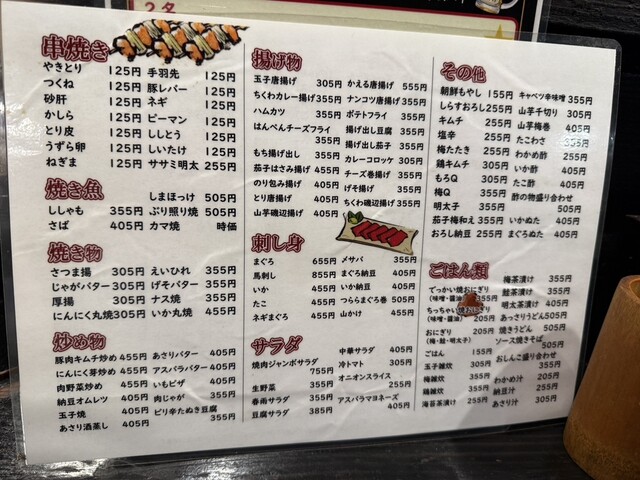 2名
串焼き
やきとり 125円 手羽先 125円
つくね 125円 豚レバー 125円
砂肝 125円 ネギ 125円
かしら 125円 ピーマン 125円
とり皮 125円 ししとう 125円
うずら卵 125円 しいたけ 125円
ねぎま 125円 ササミ明太 255円
焼き魚
しまほっけ 505円
ししゃも 355円 ぶり照り焼 505円
さば 405円 カマ焼 時価
焼き物
さつま揚 305円 えいひれ 355円
じゃがバター 305円 げそバター 355円
厚揚 305円 ナス焼 355円
にんにく丸焼 305円 いか丸焼 455円
炒め物
豚肉キムチ炒め 455円 あさりバター 405円
にんにく芽炒め 455円 アスパラバター 405円
肉野菜炒め 455円 いもピザ 405円
納豆オムレツ 405円 肉じゃが 355円
玉子焼 405円 ピリ辛たぬき豆腐 355円
あさり酒蒸し 405円
揚げ物
玉子唐揚げ 305円 かえる唐揚げ 555円
ちくわカレー揚げ 355円 ナンコツ唐揚げ 355円
ハムカツ 355円 ポテトフライ 355円
はんぺんチーズフライ 355円 揚げ出し豆腐 355円
揚げ出し茄子 355円
もち揚げ出し 355円 カレーコロッケ 305円
茄子はさみ揚げ 455円 チーズ巻揚げ 355円
のり包み揚げ 405円 げそ揚げ 355円
とり唐揚げ 405円 ちくわ磯辺揚げ 355円
山芋磯辺揚げ 405円
刺し身
まぐろ 655円 メサバ 355円
馬刺し 855円 まぐろ納豆 405円
いか 455円 いか納豆 405円
たこ 455円 つららまぐろ巻 505円
ネギまぐろ 455円 山かけ 455円
サラダ
焼肉ジャンボサラダ 755円 中華サラダ 405円
冷トマト 305円
生野菜 355円 オニオンスライス 255円
春雨サラダ 355円 アスパラマヨネーズ 405円
豆腐サラダ 385円
その他
朝鮮もやし 155円 キャベツ辛味噌 355円
しらすおろし 255円 山芋千切り 305円
キムチ 255円 山芋梅巻 405円
塩辛 255円 たこわさ 355円
梅たたき 255円 わかめ酢 255円
鶏キムチ 305円 いか酢 405円
もろQ 305円 たこ酢 405円
梅Q 355円 酢の物盛り合わせ 505円
明太子 355円
茄子梅和え 355円 いかぬた 405円
おろし納豆 255円 まぐろぬた 405円
ごはん類
でっかい焼おにぎり (味噌・醤油) 355円 梅茶漬け 355円
鮭茶漬け 355円
ちっちゃい焼おにぎり (味噌・醤油) 205円 明太茶漬け 405円
あっさりうどん 505円
おにぎり (梅・鮭・明太子) 205円 焼きうどん 505円
ソース焼きそば 505円
ごはん 155円 おしんこ盛り合わせ 355円
玉子雑炊 305円
梅雑炊 355円 わかめ汁 205円
鶏雑炊 355円 納豆汁 255円
海苔茶漬け 255円 あさり汁 305円